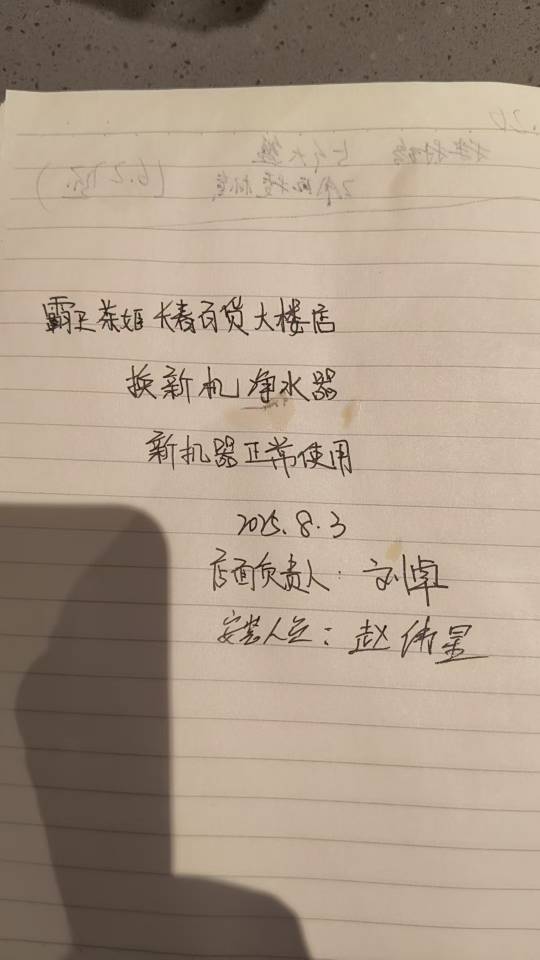 霸王茶姬长春百货大楼店
换新机净水器
新机器正常使用
2025.8.3
店面负责人：刘卓
安装人员：赵伟星